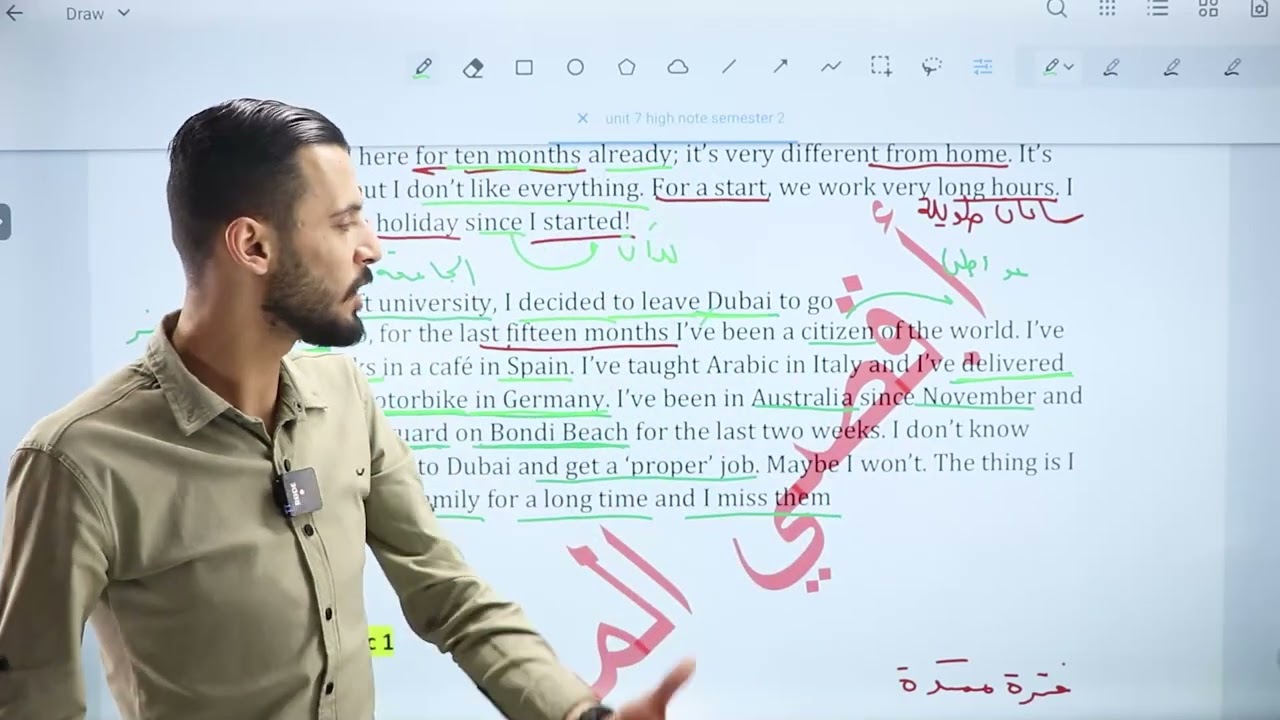 Draw
unit 7 high note semester 2
here for ten months already; it's very different from home. It's
ut I don't like everything. For a start, we work very long hours. I
ساعات طويلة
holiday since I started!
بدأت
الجامعة
t university, I decided to leave Dubai to go
, for the last fifteen months I've been a citizen of the world. I've
s in a café in Spain. I've taught Arabic in Italy and I've delivered
otorbike in Germany. I've been in Australia since November and
uard on Bondi Beach for the last two weeks. I don't know
to Dubai and get a 'proper' job. Maybe I won't. The thing is I
mily for a long time and I miss them
c 1
فترة محددة